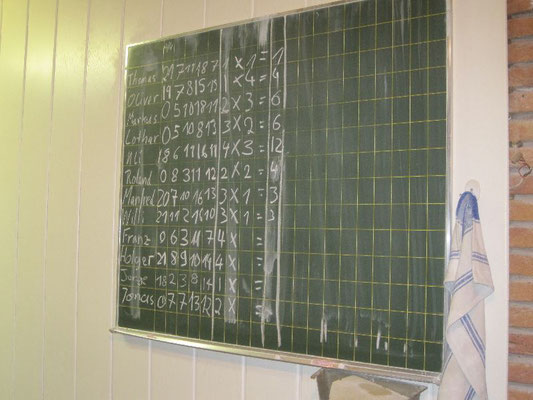 Thomas 21 7 11 18 7 1 x 1 = 1
Oliver 19 7 8 15 13 1 x 4 = 4
Markus 0 5 10 18 11 2 x 3 = 6
Lothar 0 5 10 8 13 3 x 2 = 6
Uli 18 6 11 16 11 4 x 3 = 12
Roland 0 8 3 11 12 2 x 2 = 4
Manfred 20 7 10 16 13 3 x 1 = 3
Willi 21 11 2 16 10 3 x 1 = 3
Franz 0 6 3 11 7 4 x =
Holger 21 8 9 10 14 4 x =
18 2 3 8 14 1 x =
Tomas 0 7 7 13 12 2 x =